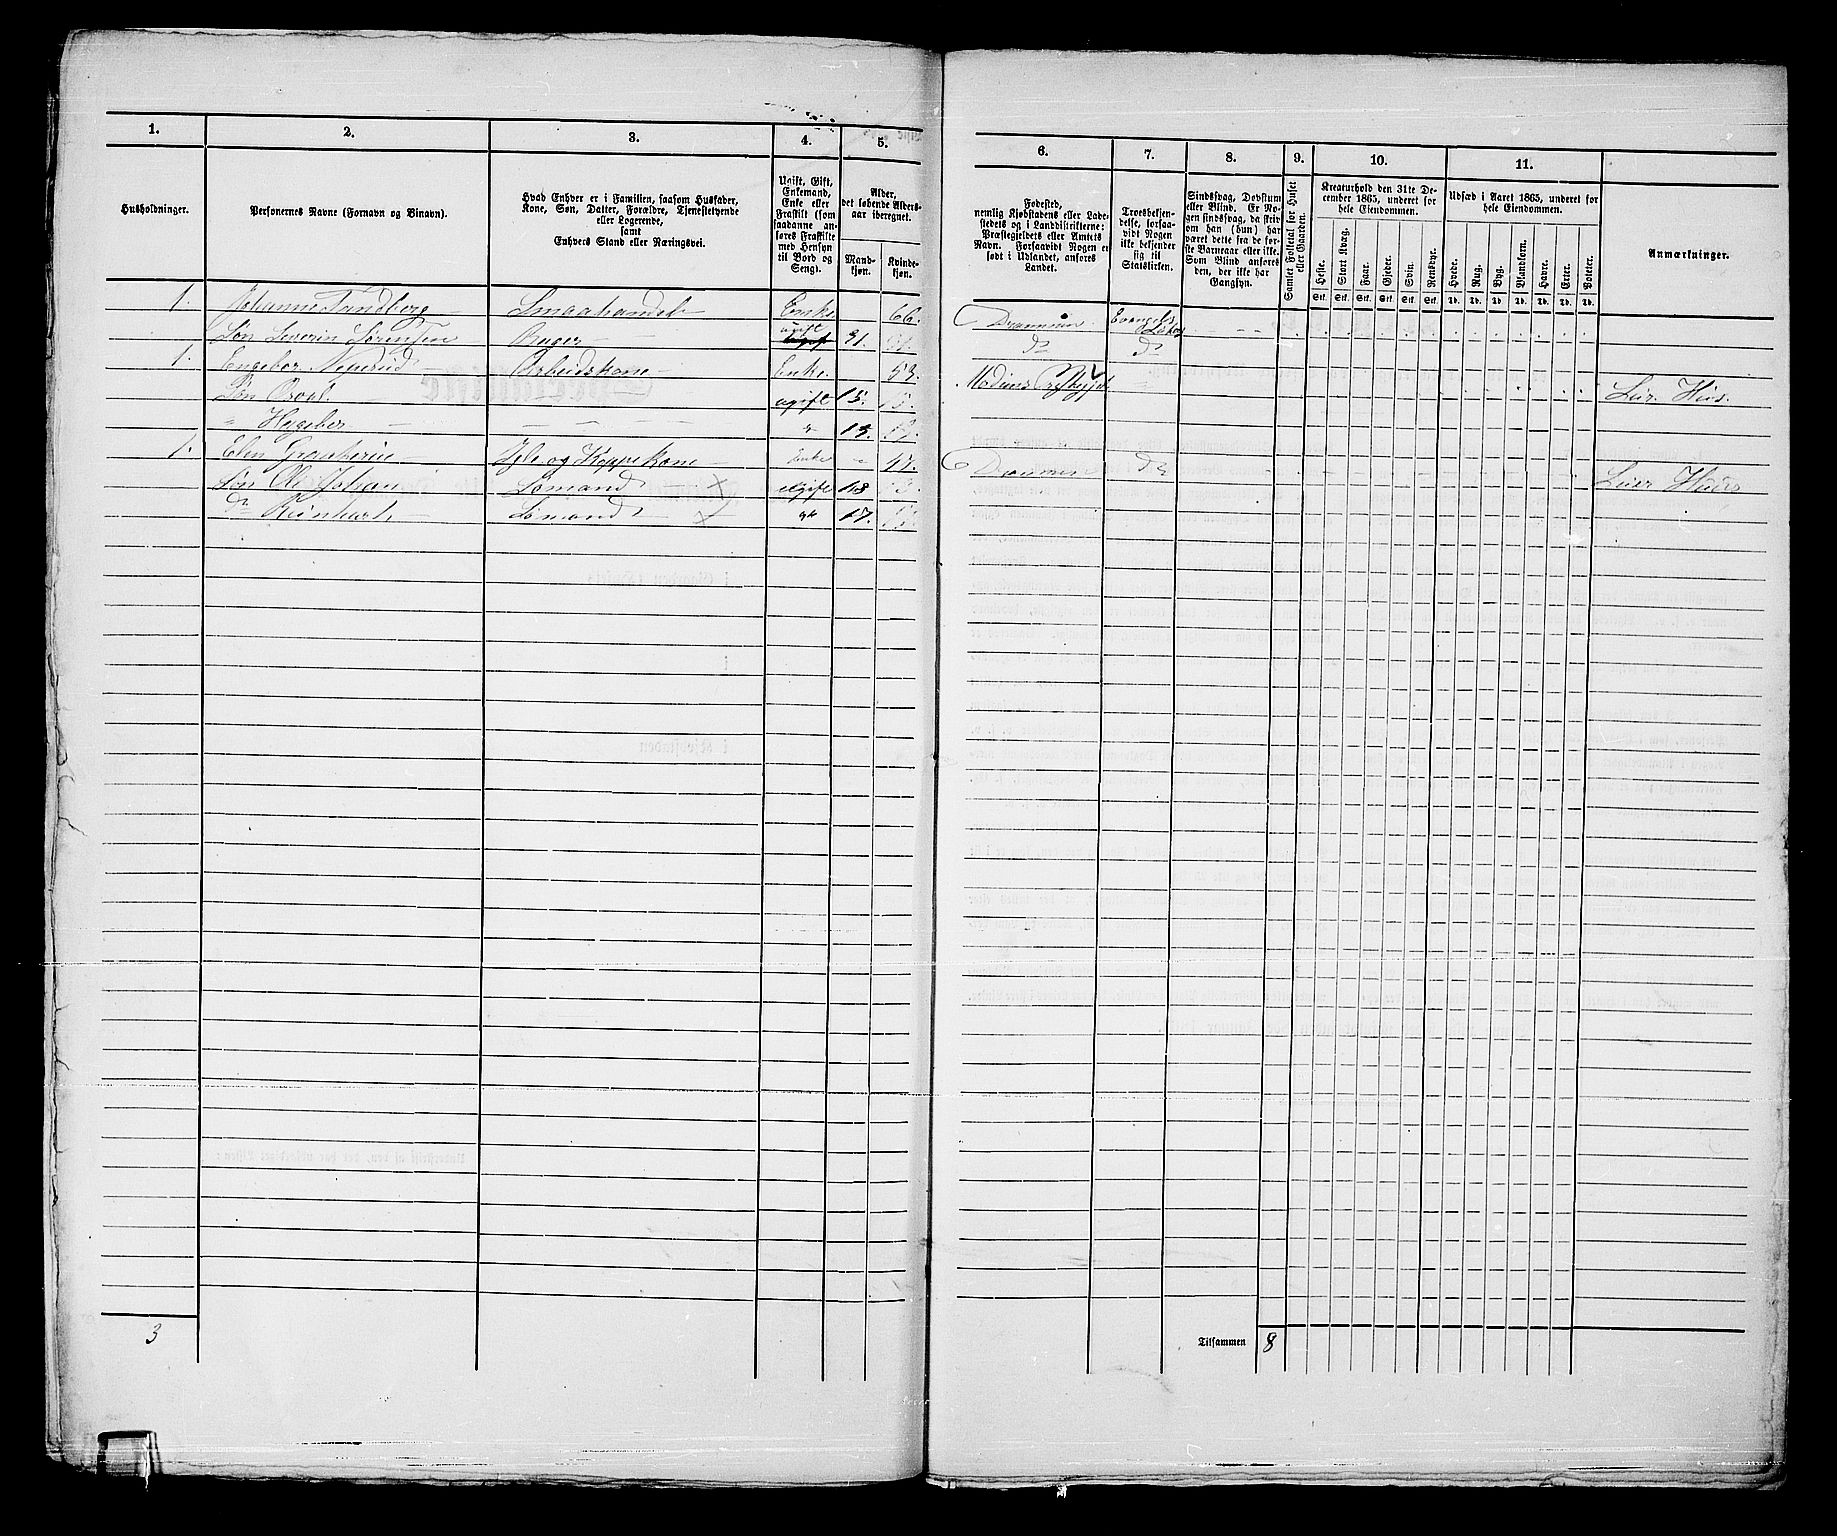 1. 2. 3. 4. 5.
Husholdninger.
Personernes Navne (Fornavn og Binavn).
Hvad Enhver er i Familien, saasom Husfader,
Kone, Søn, Datter, Forældre, Tjenestetyende
eller Logerende,
samt
Enhvers Stand eller Næringsvei.
Ugift, Gift,
Enkemand,
Enke eller
Fraskilt (som
saadanne an-
føres Fraskilte
med Hensyn
til Bord og
Seng).
Alder,
det løbende Alders-
aar iberegnet.
Mand-
kjøn.
Kvinde-
kjøn.
1. Johanne Sandberg Smaahandel Enke 66.
Søn Severin Sørensen ugift 31.
1. Engebor Arbeidskone Enke 53.
Søn ugift 15.
" " 13.
1. Elen Igle og Koppekone Enke 47.
Søn Ole Johan Sømand ugift 18
do Reinhart Sømand 17.
3
6. 7. 8. 9. 10. 11.
Fødested,
nemlig Kjøbstadens eller Lade-
stedets og i Landdistrikterne:
Præstegjeldets eller Amtets
Navn. Forsaavidt Nogen er
født i Udlandet, anføres
Landet.
Troesbekjen-
delse, forsaa-
vidt Nogen
ikke bekjender
sig til
Statskirken.
Sindssvag, Døvstum
eller Blind. Er No-
gen sindssvag, da skriv
om han (hun) har
været dette fra de før-
ste Barneaar eller ikke.
Som Blind anføres
den, der ikke har
Gangsyn.
Samlet Folketal for Huset
eller Gaarden.
Kreaturhold den 31te De-
cember 1865, underet for
hele Eiendommen.
Heste. Stort Kvæg. Faar. Gjeder. Svin. Rensdyr.
Stk. Stk. Stk. Stk. Stk. Stk.
Udsæd i Aaret 1865, underet for
hele Eiendommen.
Hvede. Rug. Byg. Blandkorn. Havre. Erter. Poteter.
Td. Td. Td. Td. Td. Td. Td.
Anmærkninger.
Drammen
do do
Modums
Drammen do
Tilsammen 8